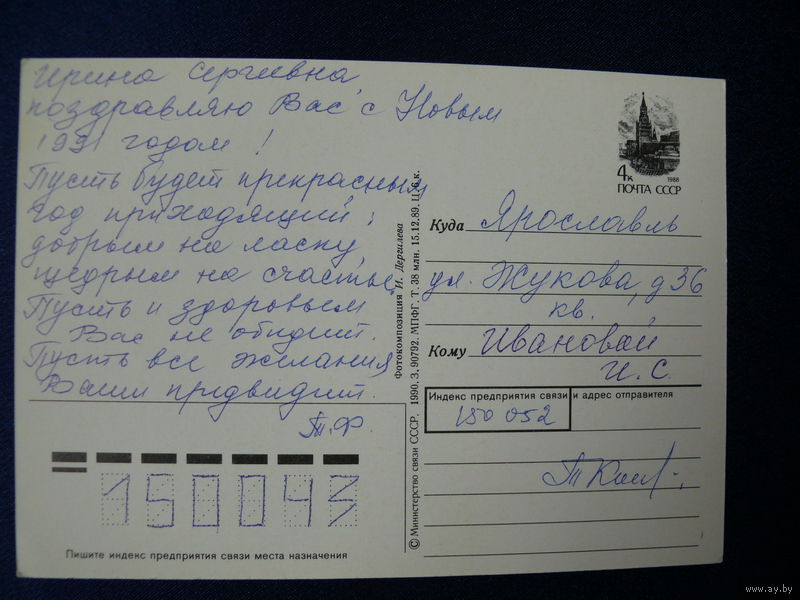 Ирина Сергеевна
поздравляю Вас с Новым
1991 годом!
Пусть будет прекрасным
год приходящий:
добрым на ласку,
щедрым на счастье,
Пусть и здоровьем
Вас не обидит.
Пусть все желания
Ваши предвидит.
Т.Ф.
150043
Пишите индекс предприятия связи места назначения
© Министерство связи СССР. 1990. З. 90792. МПФГ. Т. 38 млн. 15.12.89. Ц. 6 к.
Фотокомпозиция И. Дергилева
4к 1988
ПОЧТА СССР
Куда Ярославль
ул. Жукова, д 36
кв.
Кому Ивановой
И. С.
Индекс предприятия связи и адрес отправителя
150 052
www.ay.by